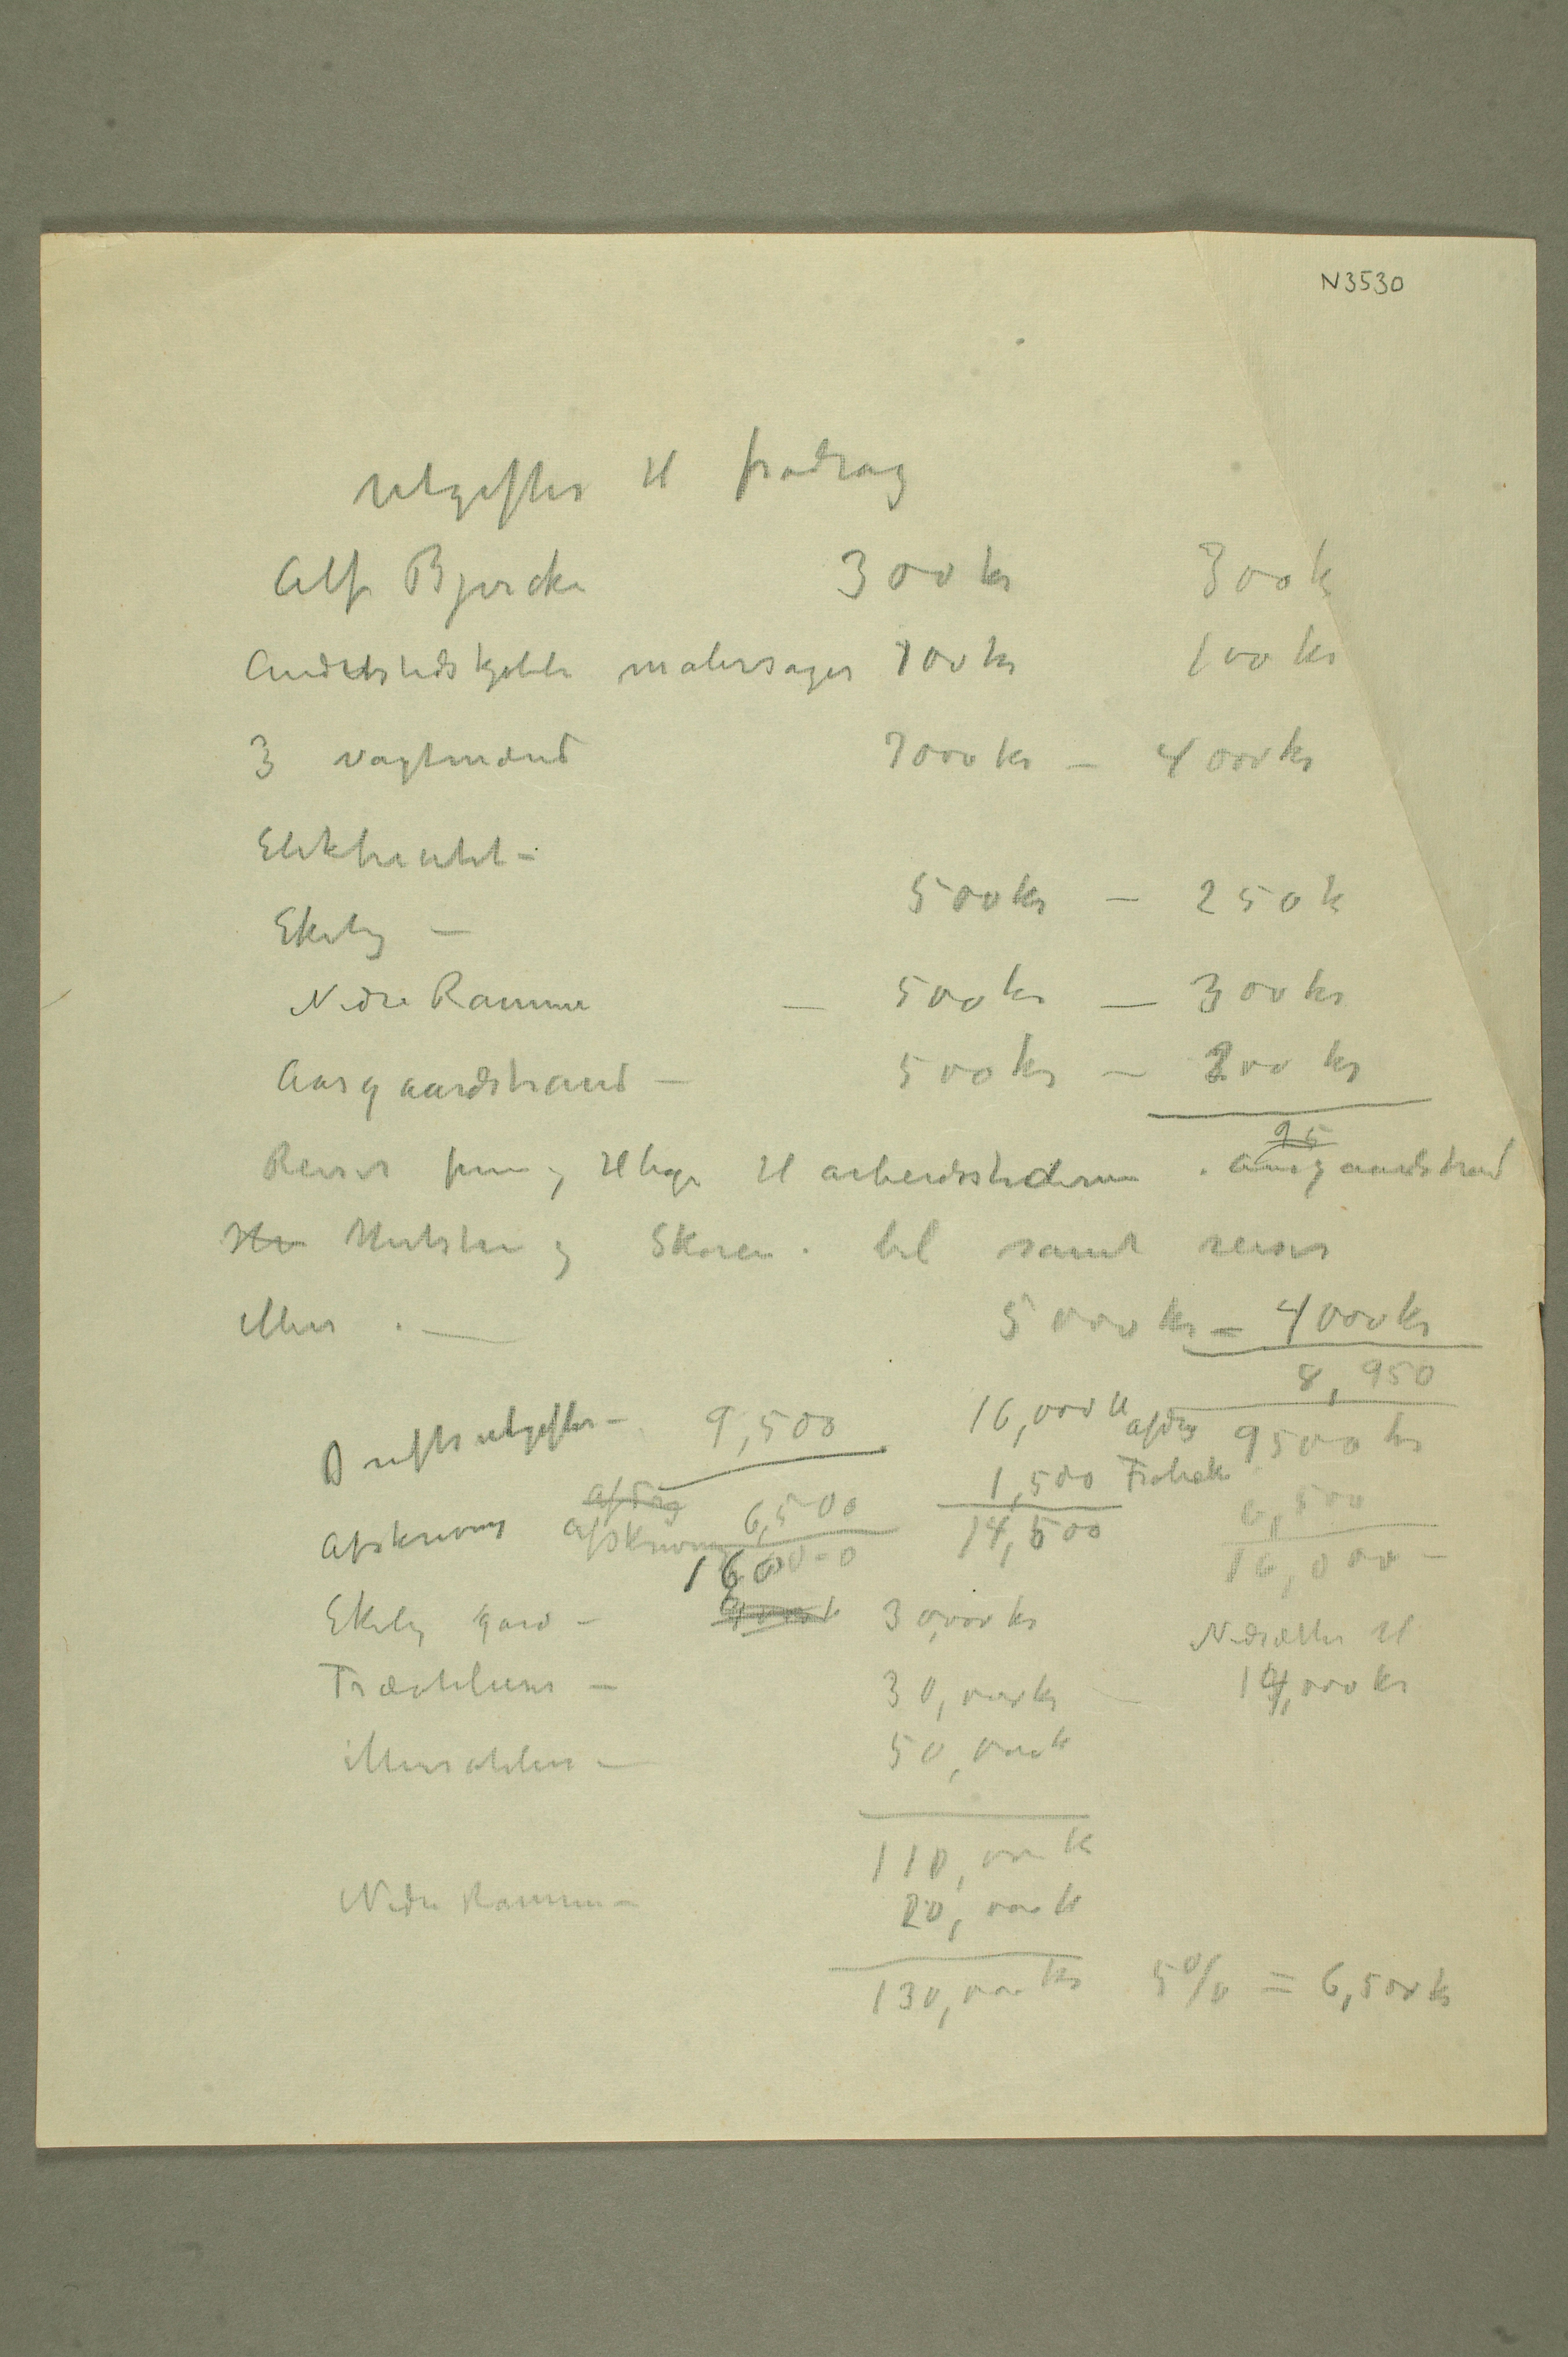 N3530
Utgifter til fradrag
Alf Bjercke 300 kr 300 k
malersager 100 kr 100 kr
3 vagtmænd 7000 kr – 4000 kr
Ekely – 500 kr – 250 k
Nedre Ramme – 500 kr – 300 kr
Aasgaardstrand – 500 kr – 200 kr
95
Reiser frem og tilbage til arbeidsstederne . Aasgaardstrand
Hvitsten og Skøien . bil samt reiser
5000 kr – 4000 kr
8,950
Driftsutgifter – 9,500 16,000 k afdrag 9500 kr
1,500 6,500
Afskrivning afdrag afskrivning 6,500 14,500 16,000 –
16000
Ekely gaard – 30,000 kr Nedsættes til
Træatelier – 30,000 kr – 14,000 kr
Muratelier – 50,000 k
110,000 k
Nedre Ramme – 20,000 k
130,000 kr 5% = 6,500 k